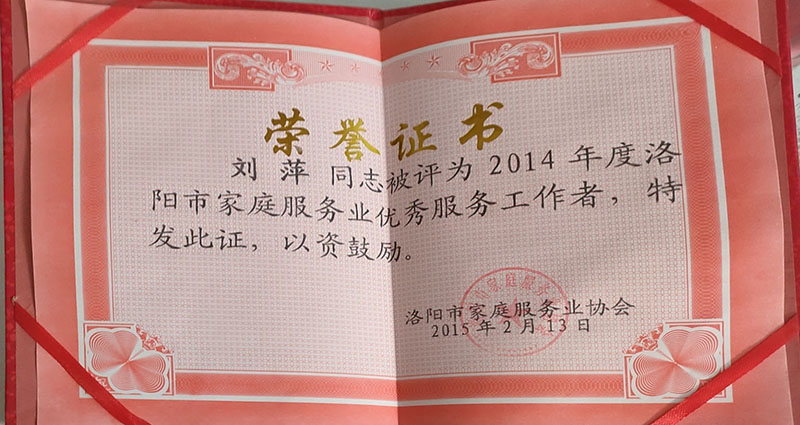 荣誉证书
刘 萍 同志被评为 2014 年度洛
阳市家庭服务业优秀服务工作者，特
发此证，以资鼓励。
洛阳市家庭服务业协会
2015 年 2 月 13 日